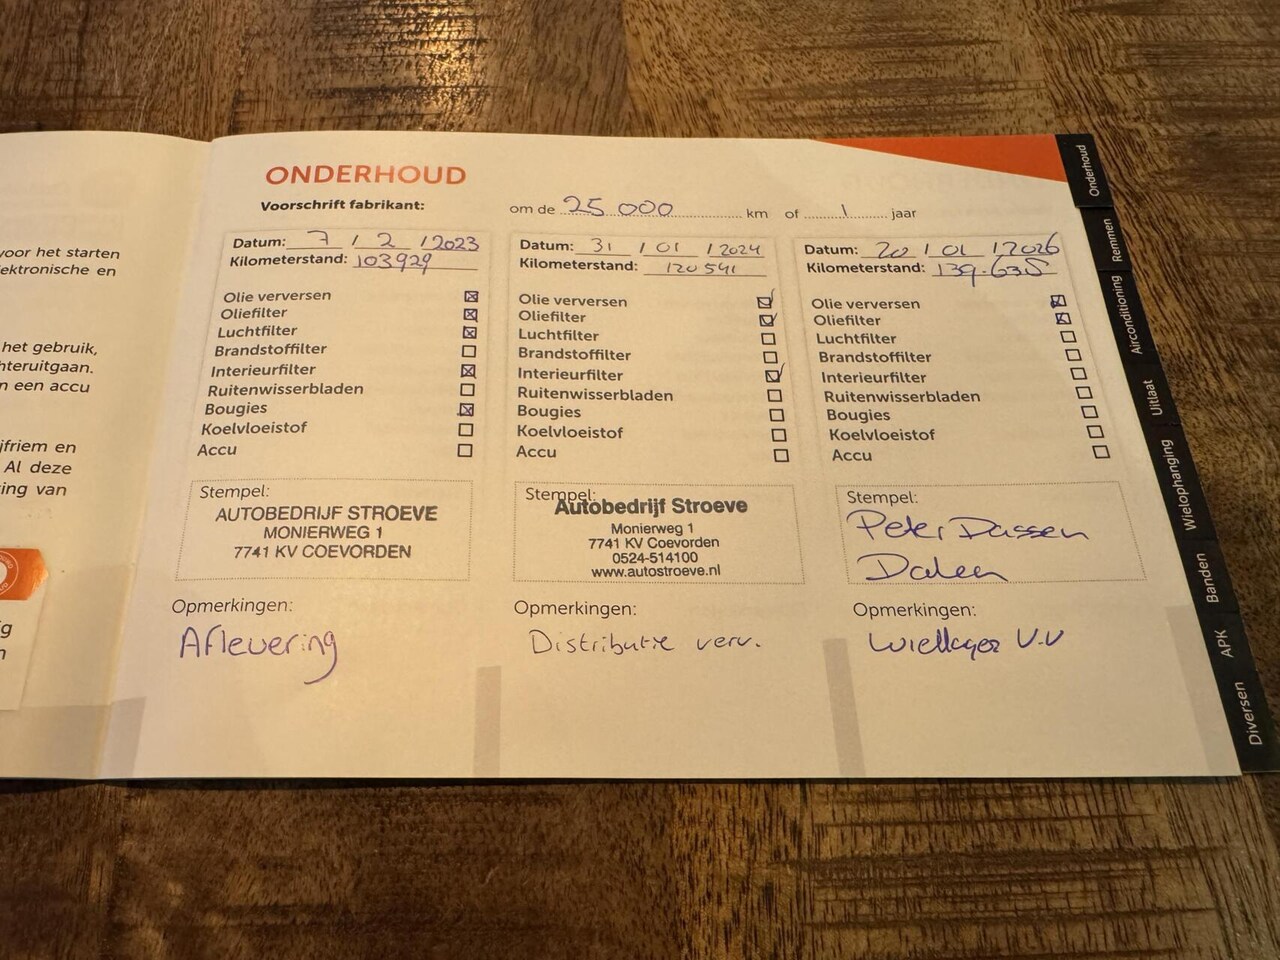 voor het starten
lektronische en
het gebruik,
hteruitgaan.
n een accu
jfriem en
Al deze
ing van
ig
n
ONDERHOUD
Voorschrift fabrikant: om de 25.000 km of 1 jaar
Datum: 7 / 2 / 2023
Kilometerstand: 103929
Olie verversen
Oliefilter
Luchtfilter
Brandstoffilter
Interieurfilter
Ruitenwisserbladen
Bougies
Koelvloeistof
Accu
Stempel:
AUTOBEDRIJF STROEVE
MONIERWEG 1
7741 KV COEVORDEN
Opmerkingen:
Aflevering
Datum: 31 / 01 / 2024
Kilometerstand: 120541
Olie verversen
Oliefilter
Luchtfilter
Brandstoffilter
Interieurfilter
Ruitenwisserbladen
Bougies
Koelvloeistof
Accu
Stempel:
Autobedrijf Stroeve
Monierweg 1
7741 KV Coevorden
0524-514100
www.autostroeve.nl
Opmerkingen:
Distributie verv.
Datum: 20 / 01 / 2026
Kilometerstand: 139.635
Olie verversen
Oliefilter
Luchtfilter
Brandstoffilter
Interieurfilter
Ruitenwisserbladen
Bougies
Koelvloeistof
Accu
Stempel:
Peter Dassen
Dalen
Opmerkingen:
Wiellager V.V
Onderhoud
Remmen
Airconditioning
Uitlaat
Wielophanging
Banden
APK
Diversen